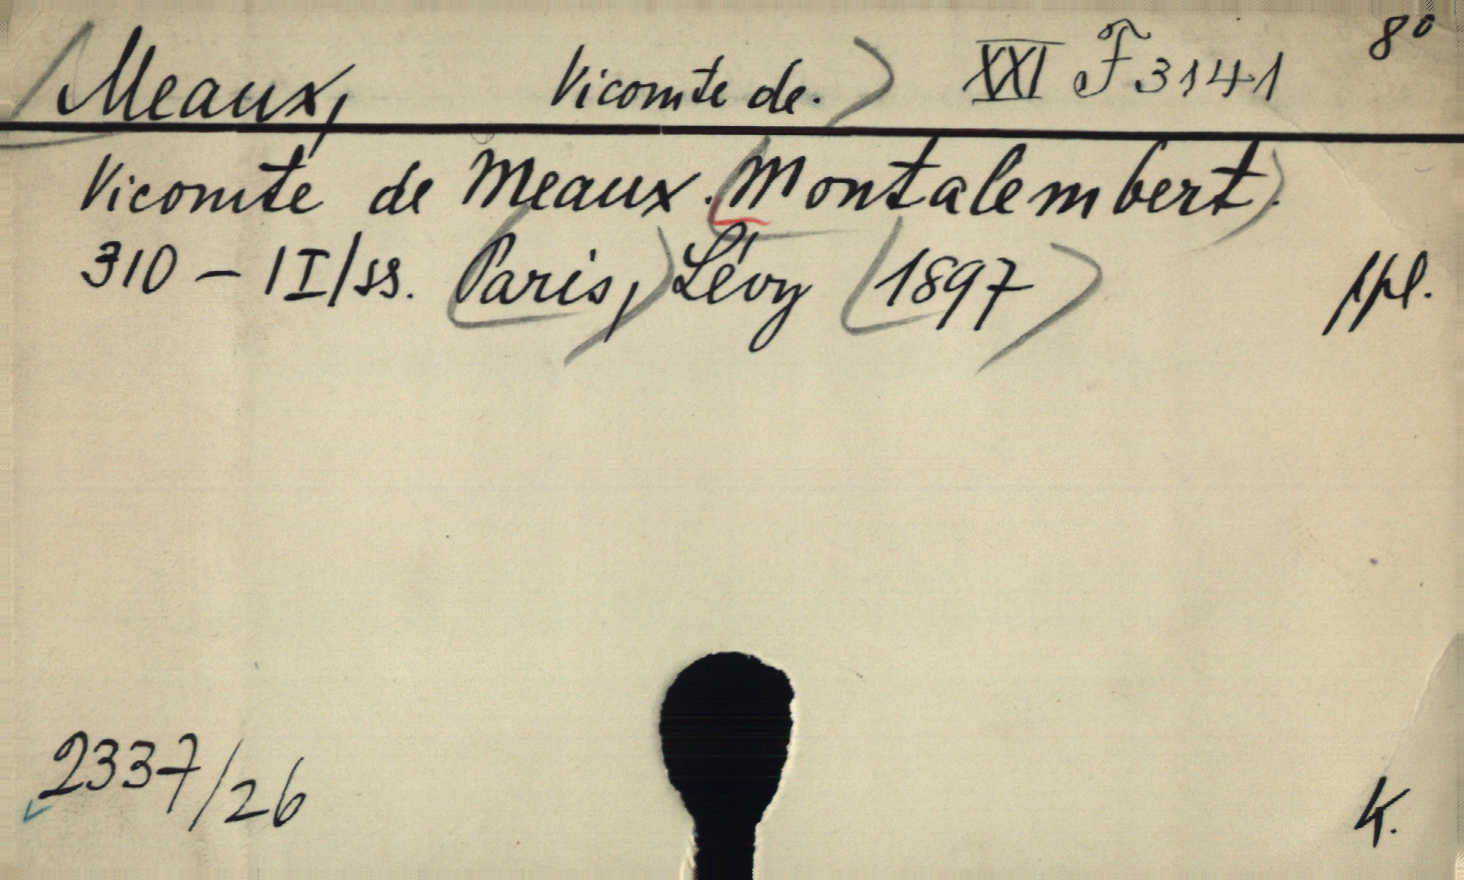 Meaux, Vicomte de. XXI F 3141 8°
Vicomte de Meaux. Montalembert.
310 – 1 I/ss. Paris, Lévy 1897 ppl.
2337/26 K.